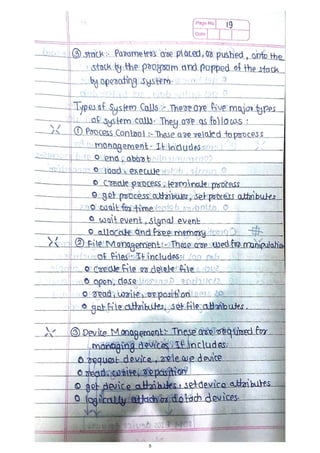 Page No. 19
Date
③ Stack :- Parametres are placed, or pushed, onto the
stack by the program and popped of the stack
by operating system
Types of System Calls :- There are five major types
of system calls. They are as follows :
① Process Control :- These are related to process
management. It includes
o end, abort
o load, execute
o Create process, terminate process
o get process attributes, set process attributes
o wait for time
o wait event, signal event
o allocate and free memory
② File Management :- These are used for manipulation
of files. It includes
o Create file or delete file
o open, close
o read, write, reposition
o get file attributes, set file attributes.
③ Device Management :- These are required for
managing devices. It includes.
o request device, release device
o read, write, reposition
o get device attributes, set device attributes
o logically attach or detach devices.